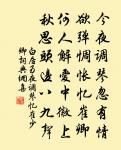 今夜調琴忽有情
欲彈惆悵憶崔卿
何人解愛中徽上
秋思頭邊八九聲
白居易夜調琴憶崔少
卿詞典網書